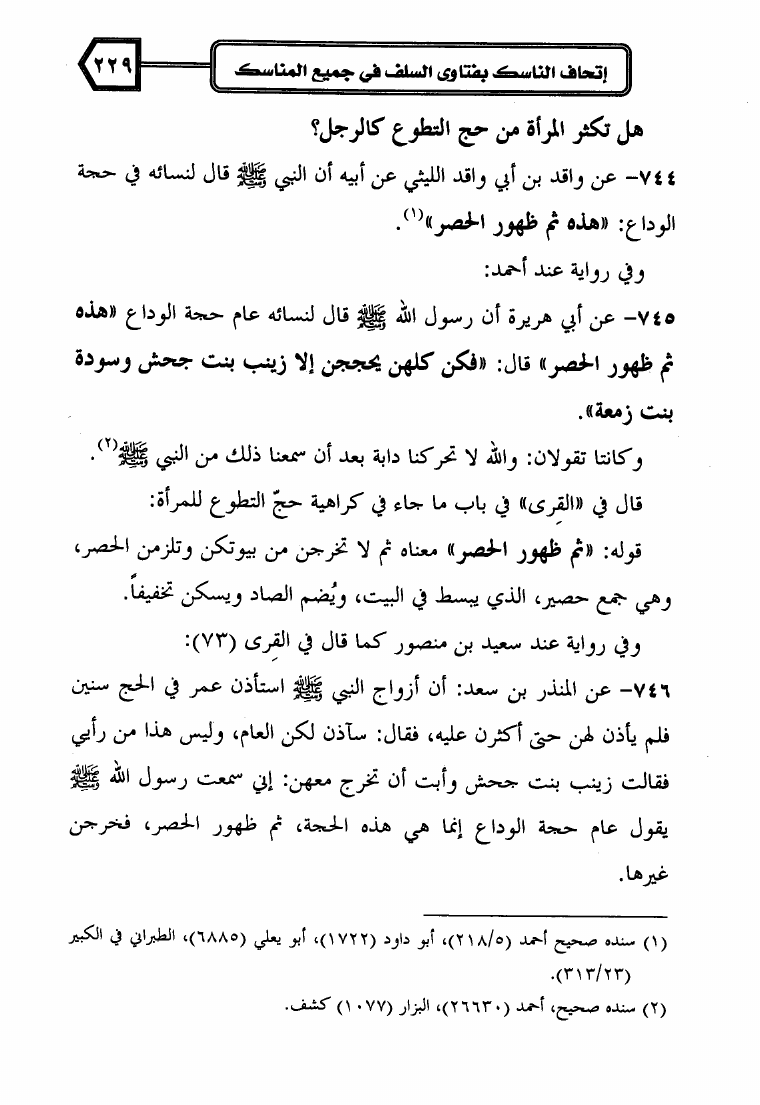 إتحاف الناسك بفتاوى السلف في جميع المناسك
٢٢٩
هل تكثر المرأة من حج التطوع كالرجل؟
٧٤٤– عن واقد بن أبي واقد الليثي عن أبيه أن النبي ﷺ قال لنسائه في حجة
الوداع: «هذه ثم ظهور الحصر»(١).
وفي رواية عند أحمد:
٧٤٥– عن أبي هريرة أن رسول الله ﷺ قال لنسائه عام حجة الوداع «هذه
ثم ظهور الحصر» قال: «فكن كلهن يحججن إلا زينب بنت جحش وسودة
بنت زمعة».
وكانتا تقولان: والله لا تحركنا دابة بعد أن سمعنا ذلك من النبي ﷺ(٢).
قال في «القِرى» في باب ما جاء في كراهية حجّ التطوع للمرأة:
قوله: «ثم ظهور الحصر» معناه ثم لا تخرجن من بيوتكن وتلزمن الحصر،
وهي جمع حصير، الذي يبسط في البيت، ويُضم الصاد ويسكن تخفيفاً.
وفي رواية عند سعيد بن منصور كما قال في القِرى (٧٣):
٧٤٦– عن المنذر بن سعد: أن أزواج النبي ﷺ استأذن عمر في الحج سنين
فلم يأذن لهن حتى أكثرن عليه، فقال: سآذن لكن العام، وليس هذا من رأيي
فقالت زينب بنت جحش وأبت أن تخرج معهن: إني سمعت رسول الله ﷺ
يقول عام حجة الوداع إنما هي هذه الحجة، ثم ظهور الحصر، فخرجن
غيرها.
(١) سنده صحيح أحمد (٢١٨/٥)، أبو داود (١٧٢٢)، أبو يعلي (٦٨٨٥)، الطبراني في الكبير
(٣١٣/٢٣).
(٢) سنده صحيح، أحمد (٢٦٦٣٠)، البزار (١٠٧٧) كشف.